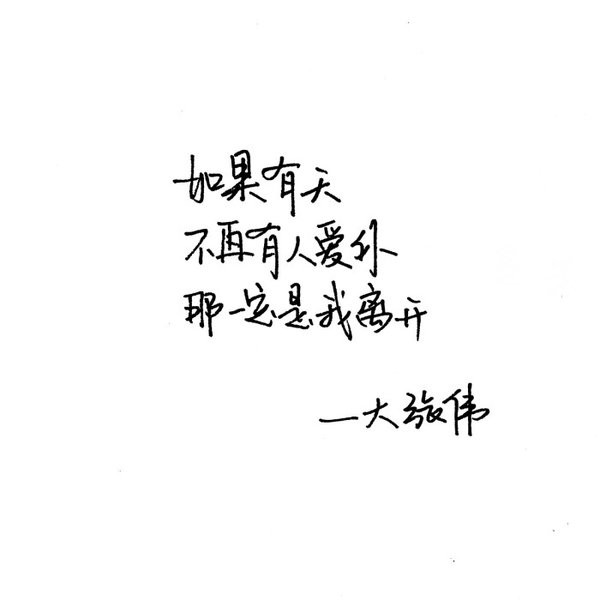 如果有天
不再有人爱你
那一定是我离开
—大张伟